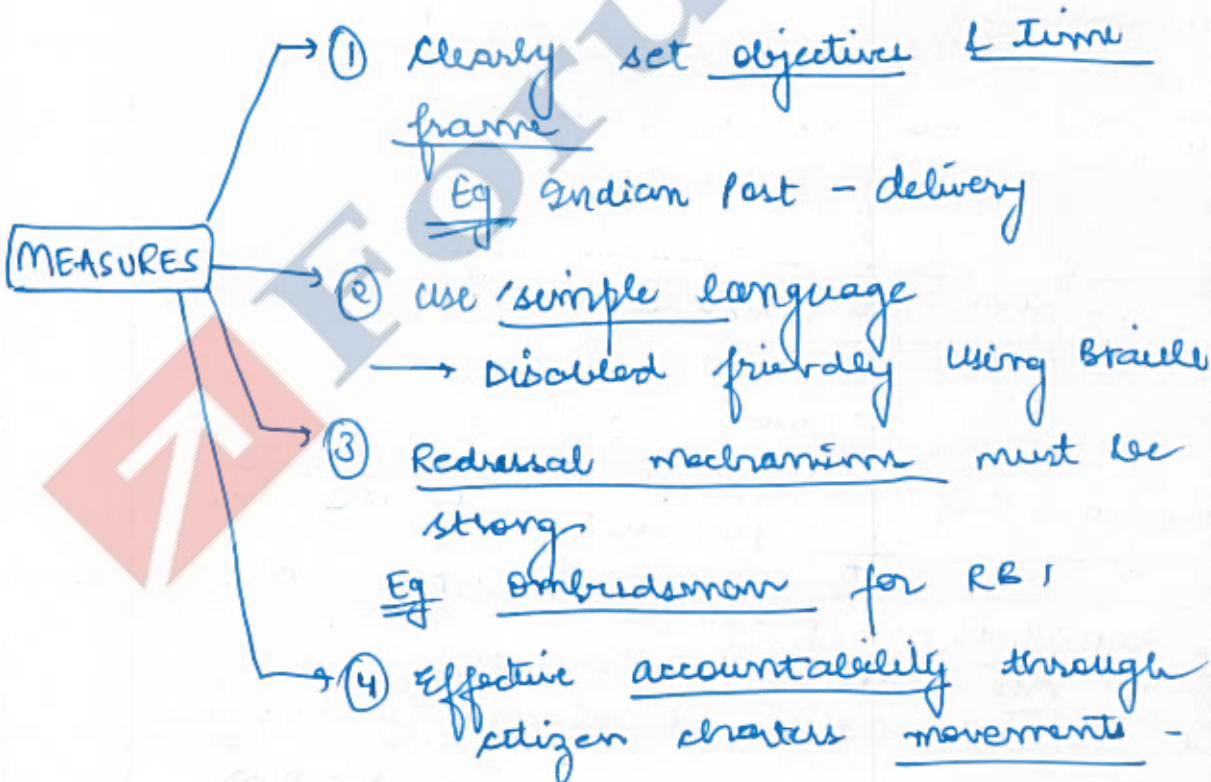 ① Clearly set objectives & Time
frame
Eg Indian Post - delivery
MEASURES
② use simple language
→ Disabled friendly using Braille
③ Redressal mechanism must be
strong
Eg ombudsman for RBI
④ Effective accountability through
citizen charters movements -
Foru